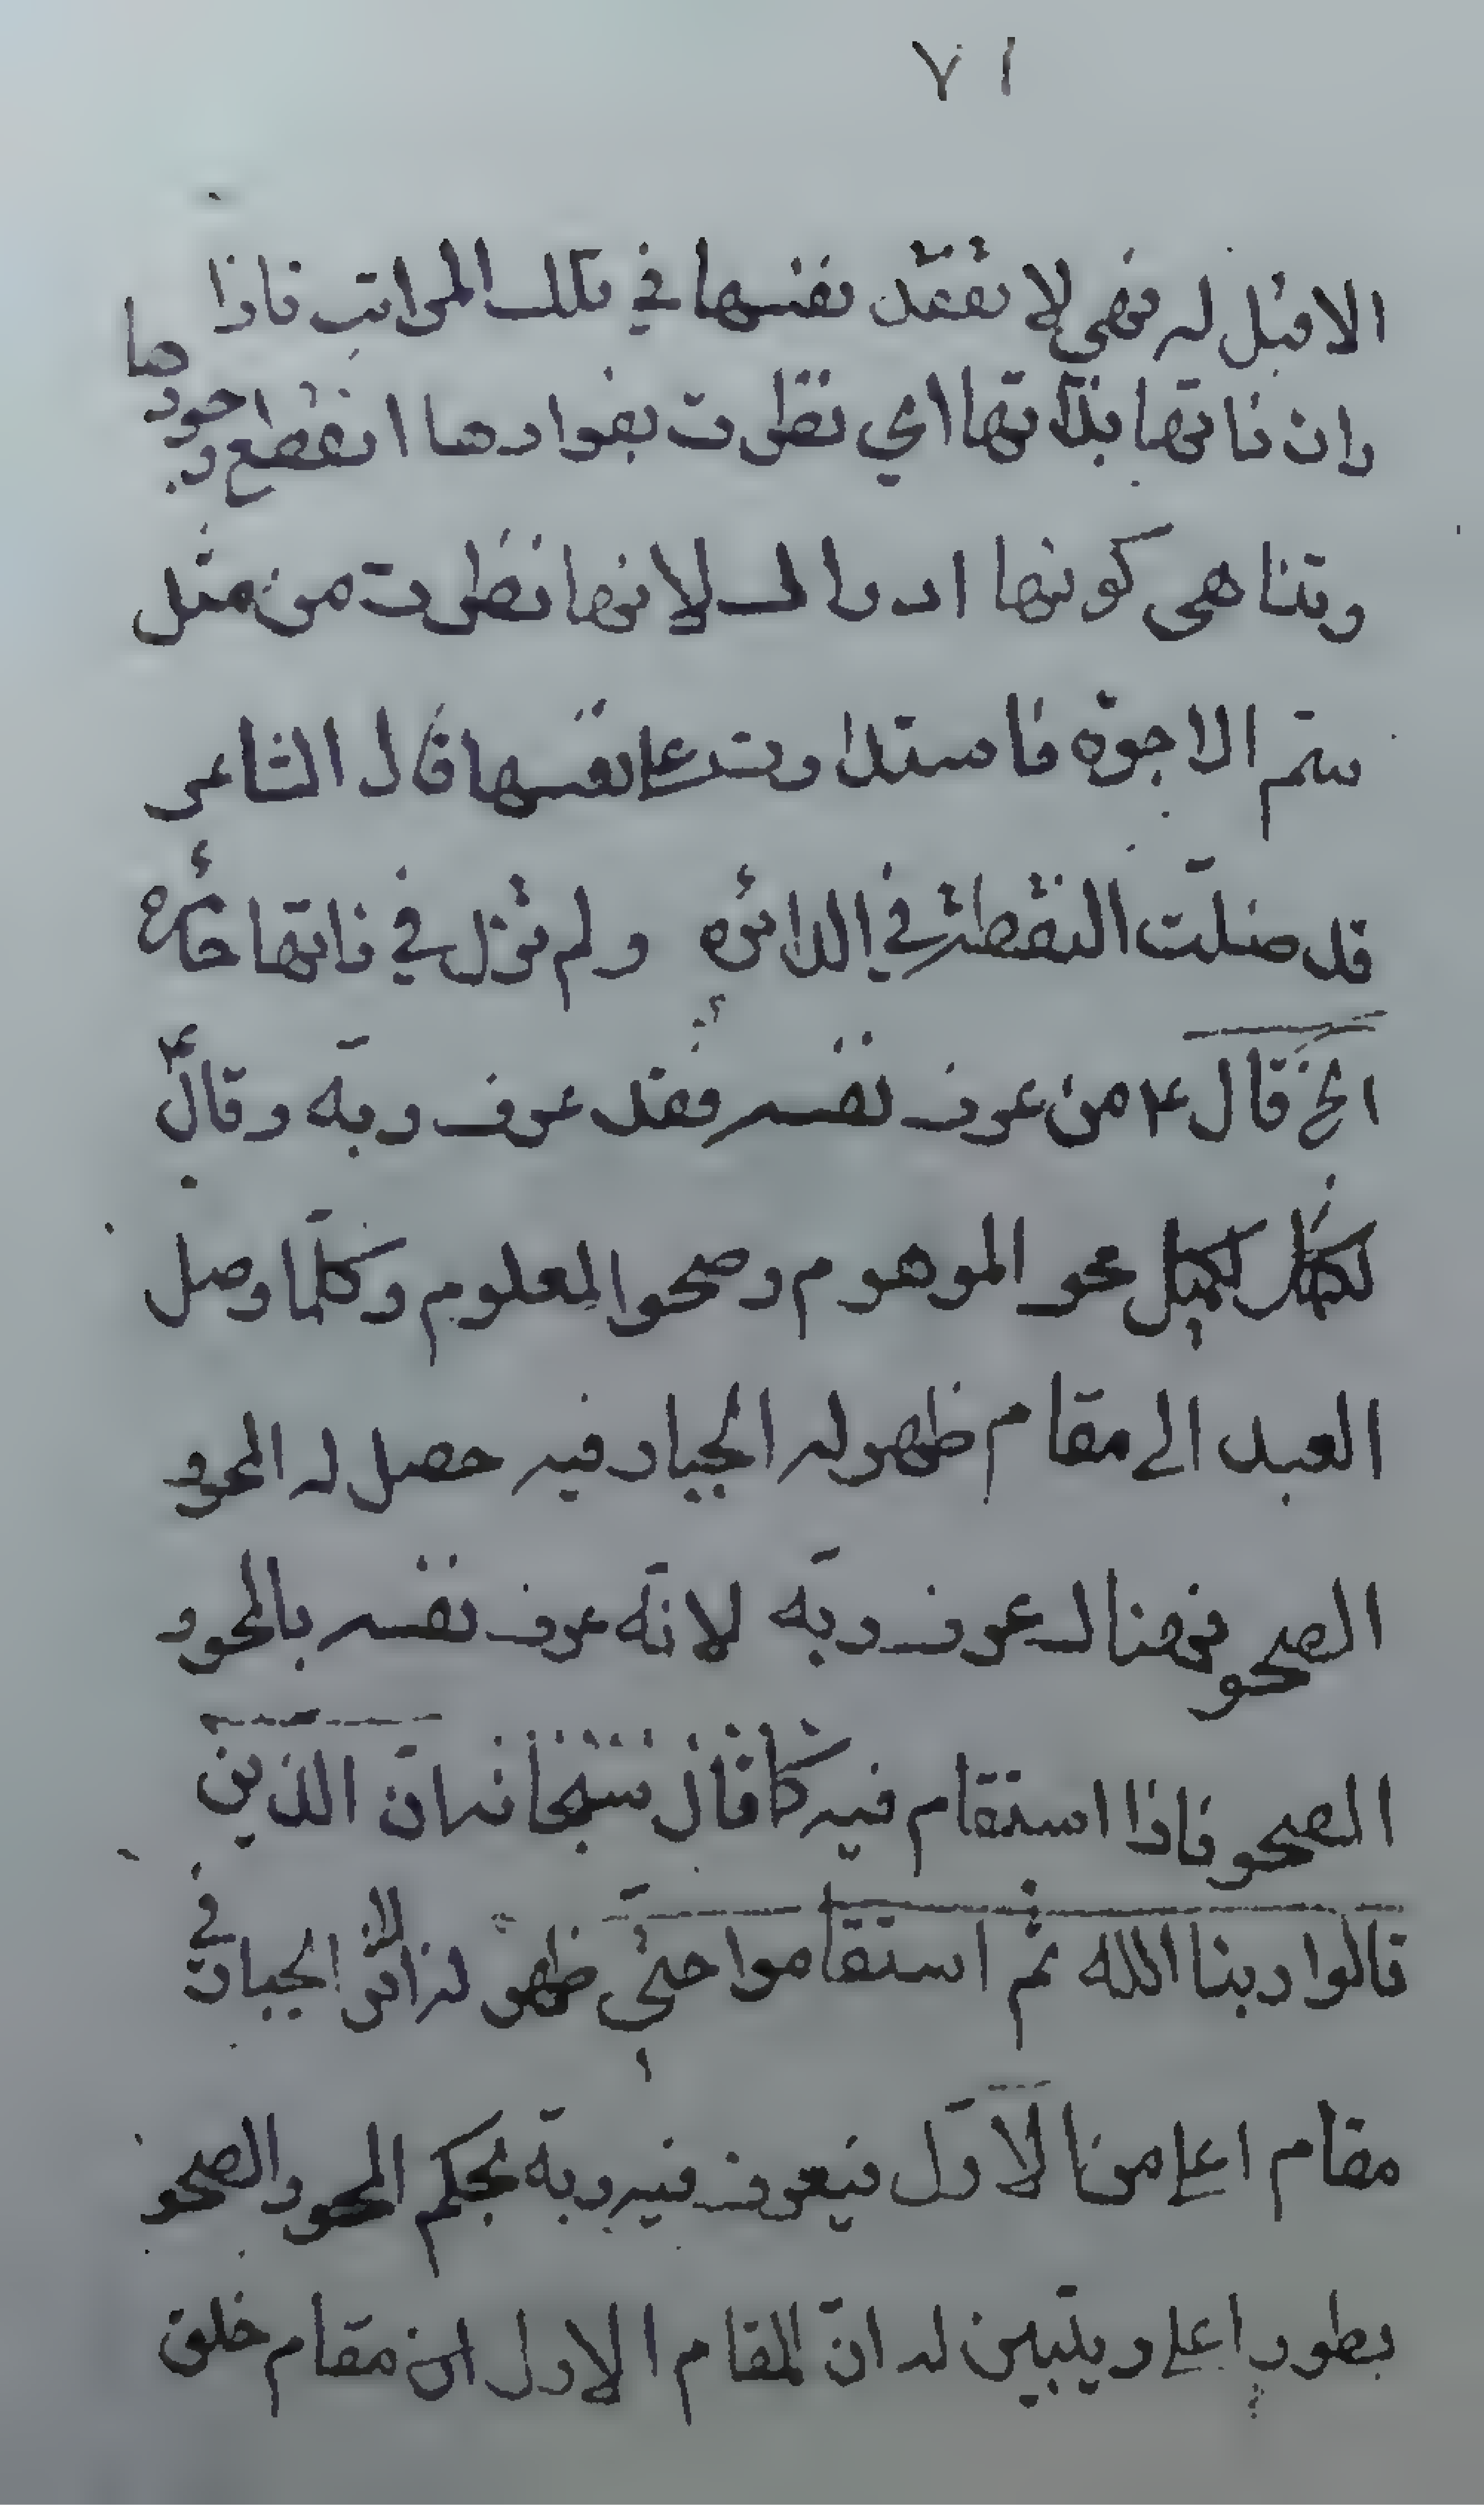 ٧١
الا قبل له فهي لا تفقد نفسها في تلك المراتب فاذا
وان ذاتها بذاتها اي نظرت بفوادها انقطع وجودها
وتناهى كونها ادراك لانها نظرت من مثل
سم الابرة فاستدارت على نفسها قال الشاعر
قد ضلت النقطة في الدائره ولم تزل في ذاتها حائره
الخ قال ع من عرف نفسه فقد عرف ربه وقال ع
لكميل محو الموهوم وصحو المعلوم وكلما وصل
العبد الى مقام ظهور الجبار فيه حصل له المحو و
الصحو فهناك عرف ربه لانه عرف نفسه بالمحو و
الصحو فاذا استقام فيه كما قال سبحانه ان الذين
قالوا ربنا الله ثم استقاموا حتى ظهر له الجبار في
مقام اعلى من الاول فيعرف فيه ربه بحكم المحو والصحو
بطور اعلى ويتبين له ان المقام الاول ان مقام خلق